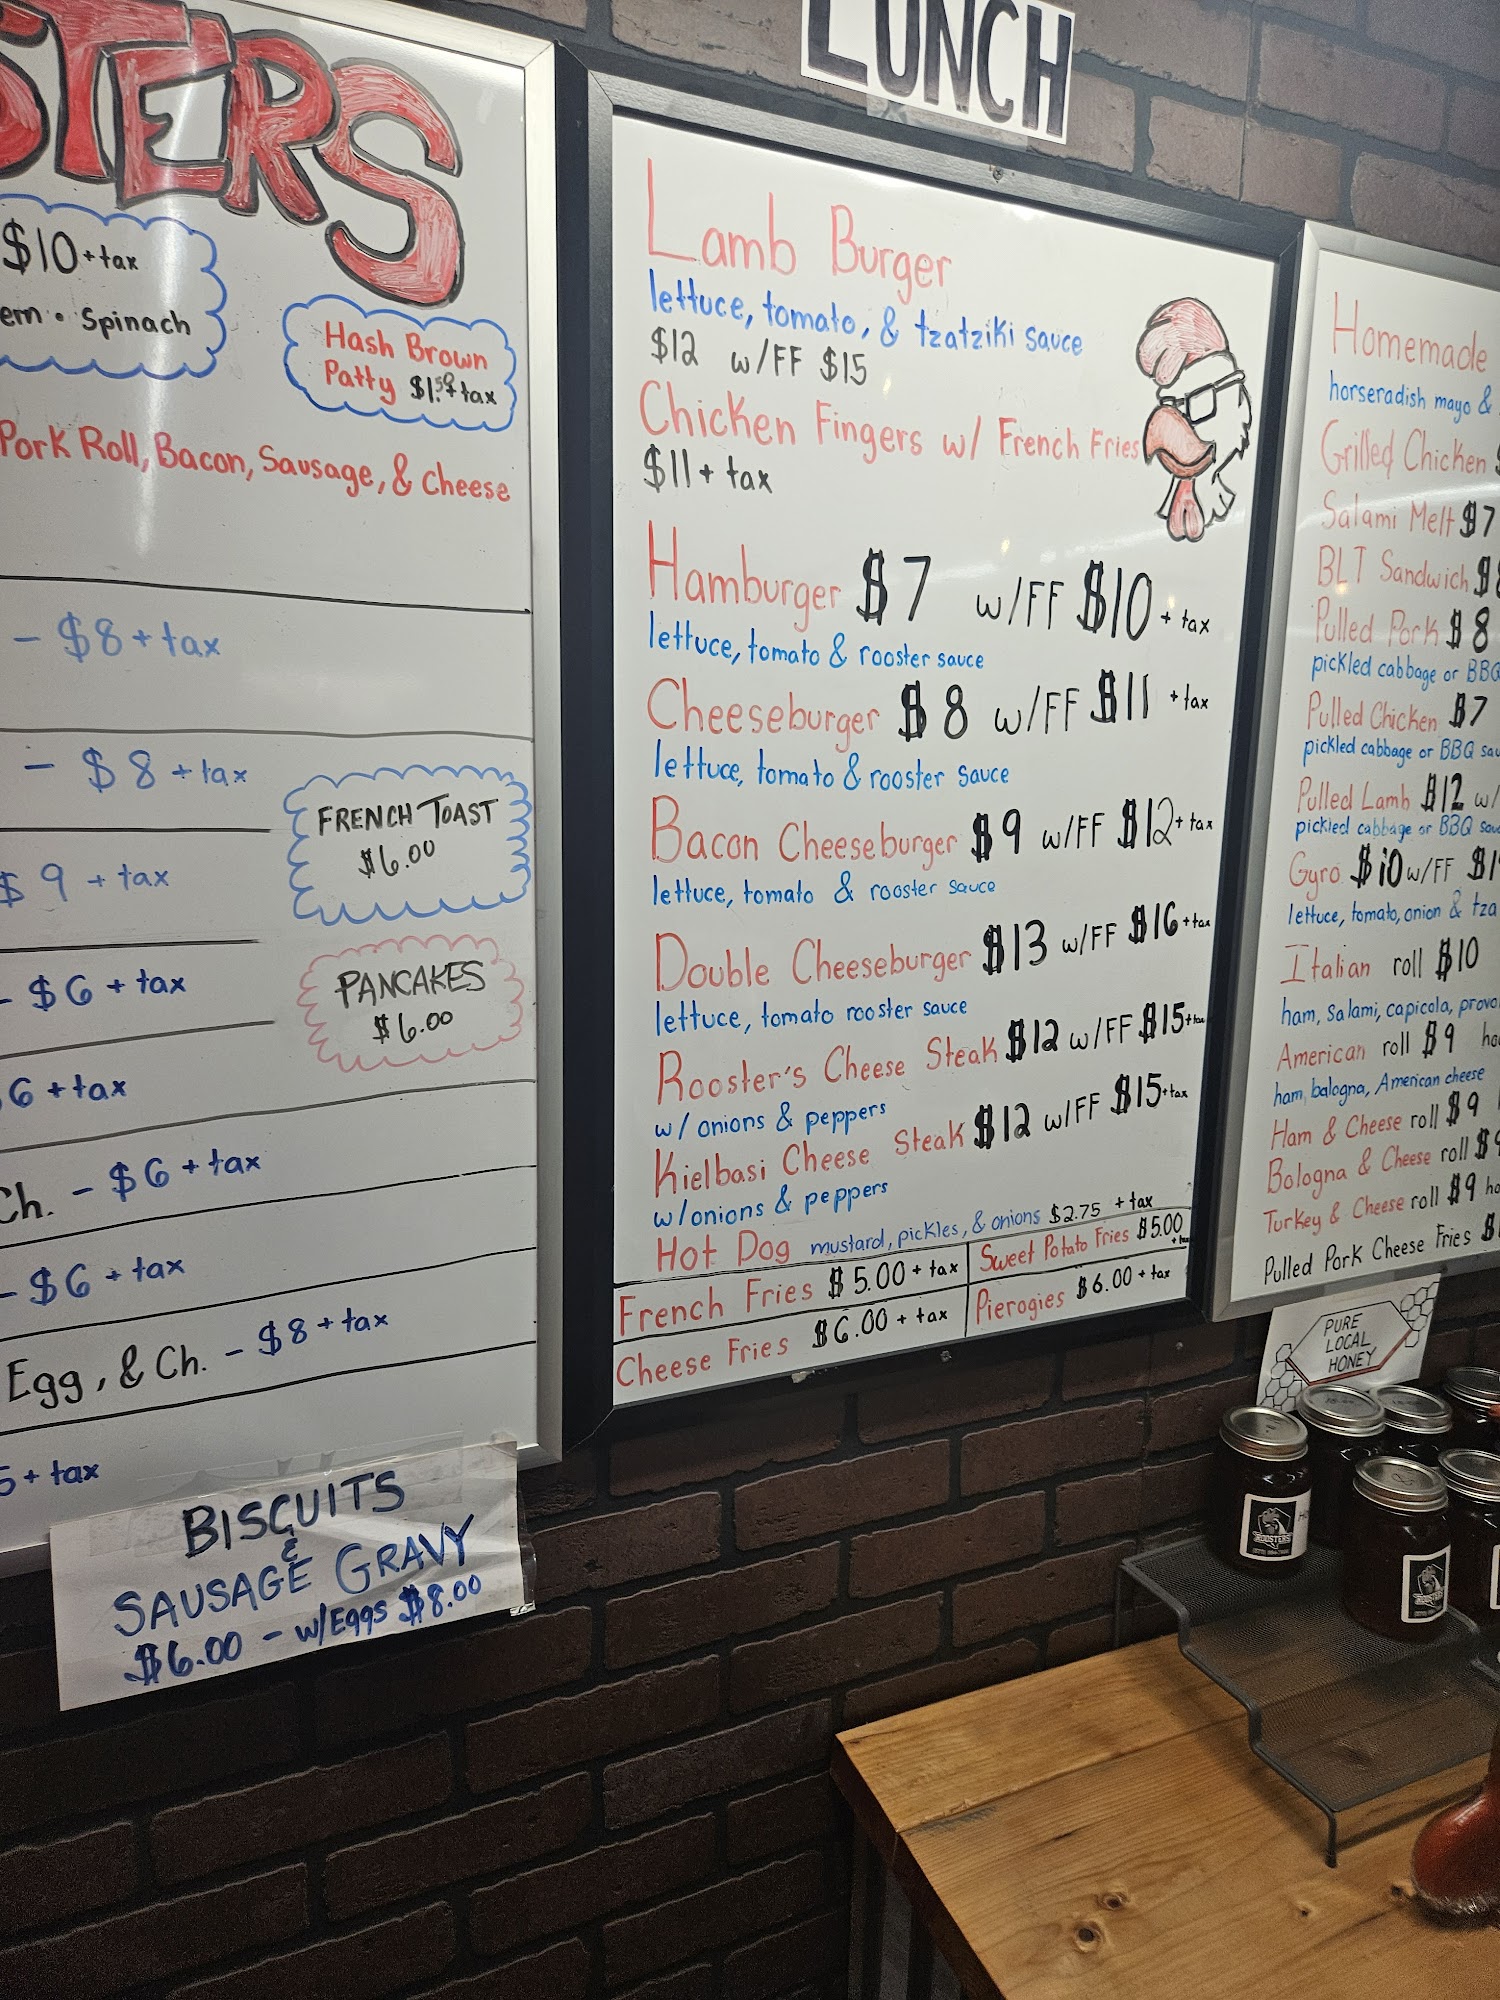 STERS
$10 + tax
ern • Spinach
Hash Brown
Patty $1.50 + tax
Pork Roll, Bacon, Sausage, & Cheese
- $8 + tax
- $8 + tax
FRENCH TOAST
$6.00
$9 + tax
PANCAKES
$6.00
- $6 + tax
6 + tax
Ch. - $6 + tax
- $6 + tax
Egg, & Ch. - $8 + tax
5 + tax
BISCUITS
&
SAUSAGE GRAVY
$6.00 - w/Eggs $8.00
LUNCH
Lamb Burger
lettuce, tomato, & tzatziki sauce
$12 w/FF $15
Chicken Fingers w/ French Fries
$11 + tax
Hamburger $7 w/FF $10 + tax
lettuce, tomato & rooster sauce
Cheeseburger $8 w/FF $11 + tax
lettuce, tomato & rooster sauce
Bacon Cheeseburger $9 w/FF $12 + tax
lettuce, tomato & rooster sauce
Double Cheeseburger $13 w/FF $16 + tax
lettuce, tomato rooster sauce
Rooster's Cheese Steak $12 w/FF $15 + tax
w/ onions & peppers
Kielbasi Cheese Steak $12 w/FF $15 + tax
w/onions & peppers
Hot Dog mustard, pickles, & onions $2.75 + tax
French Fries $5.00 + tax
Sweet Potato Fries $5.00 + tax
Cheese Fries $6.00 + tax
Pierogies $6.00 + tax
Homemade
horseradish mayo &
Grilled Chicken
Salami Melt $7
BLT Sandwich
Pulled Pork $8
pickled cabbage or BBQ
Pulled Chicken $7
pickled cabbage or BBQ sau
Pulled Lamb $12 w/
pickled cabbage or BBQ sau
Gyro $10 w/FF $1
lettuce, tomato, onion & tza
Italian roll $10
ham, salami, capicola, provo
American roll $9 ho
ham, bologna, American cheese
Ham & Cheese roll $9
Bologna & Cheese roll $9
Turkey & Cheese roll $9 ho
Pulled Pork Cheese Fries $
PURE
LOCAL
HONEY
ROOSTERS